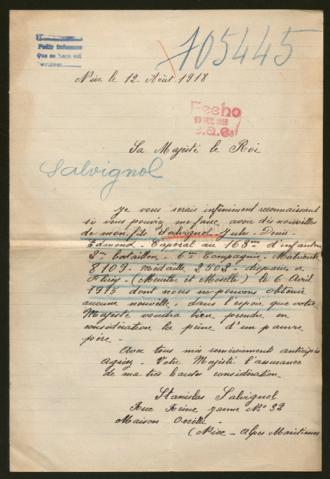 105445
Nice le 12 Août 1918
Fecho
Sa Majesté le Roi
Salvignol
Je vous serais infiniment reconnaissant
si vous pouviez me faire avoir des nouvelles
de mon fils Salvignol Jules Denis
Edmond. Caporal au 168me d'infanterie
2me bataillon. 6e Compagnie. Matricule
8109. Médaille 2503. disparu a
Flirey (Meurthe et Moselle) le 6 Avril
1915 dont nous ne pouvons obtenir
aucune nouvelle. dans l'espoir que votre
Majesté voudra bien prendre en
considération la peine d'un pauvre
père.
Avec tous mes remerciements anticipés
Agréez Votre Majesté l'assurance
de ma très haute considération.
Stanislas Salvignol
Rue Reine Jeanne No 32
Maison
(Nice - Alpes Maritimes